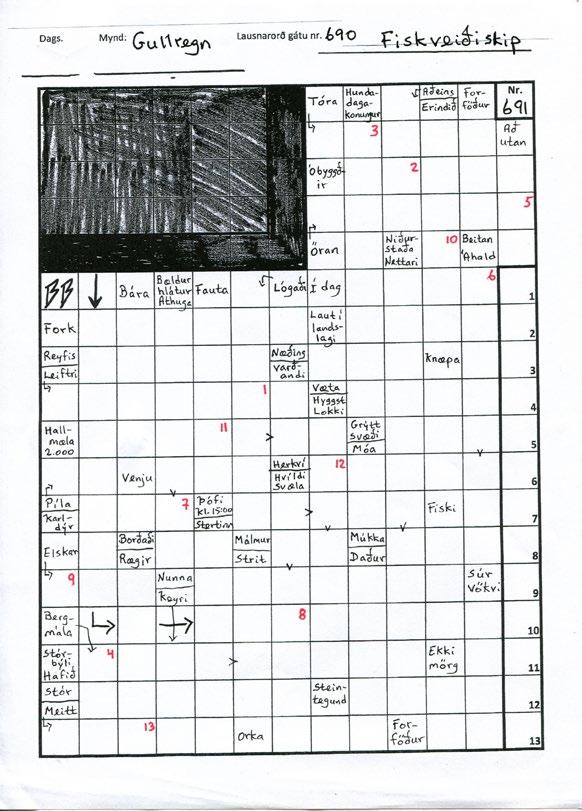 Dags.
Mynd: Gullregn
Lausnarorð gátu nr. 690
Fiskveiðiskip
Tóra
Hunda-
daga-
konungur
Aðeins
Erindið
For-
föður
Nr.
691
3
Að
utan
Óbyggð-
ir
2
5
Öran
Niður-
staða
Nettari
10
Beitan
Áhald
BB
Bára
Bældur
hlátur
Athuga
Fauta
Lógaði
Í dag
6
1
Fork
Laut í
lands-
lagi
2
Reyfis
Leiftri
Næðing
Varð-
andi
Knæpa
3
1
Væta
Hyggst
Lokki
4
Hall-
mæla
2.000
11
Grýtt
svæði
Móa
5
Venju
Herkví
Hvíldi
Svæla
12
6
Píla
Karl-
dýr
7
Þófi
kl. 15:00
Stertinn
Fiski
7
Elskar
Borðaði
Rægir
Málmur
Strit
Múkka
Daður
8
9
Nunna
Keyri
Súr
Vökvi
9
Berg-
mála
8
10
Stór-
býli
Hafið
4
Ekki
mörg
11
Stór
Meitt
Stein-
tegund
12
13
Orka
For-
föður
13